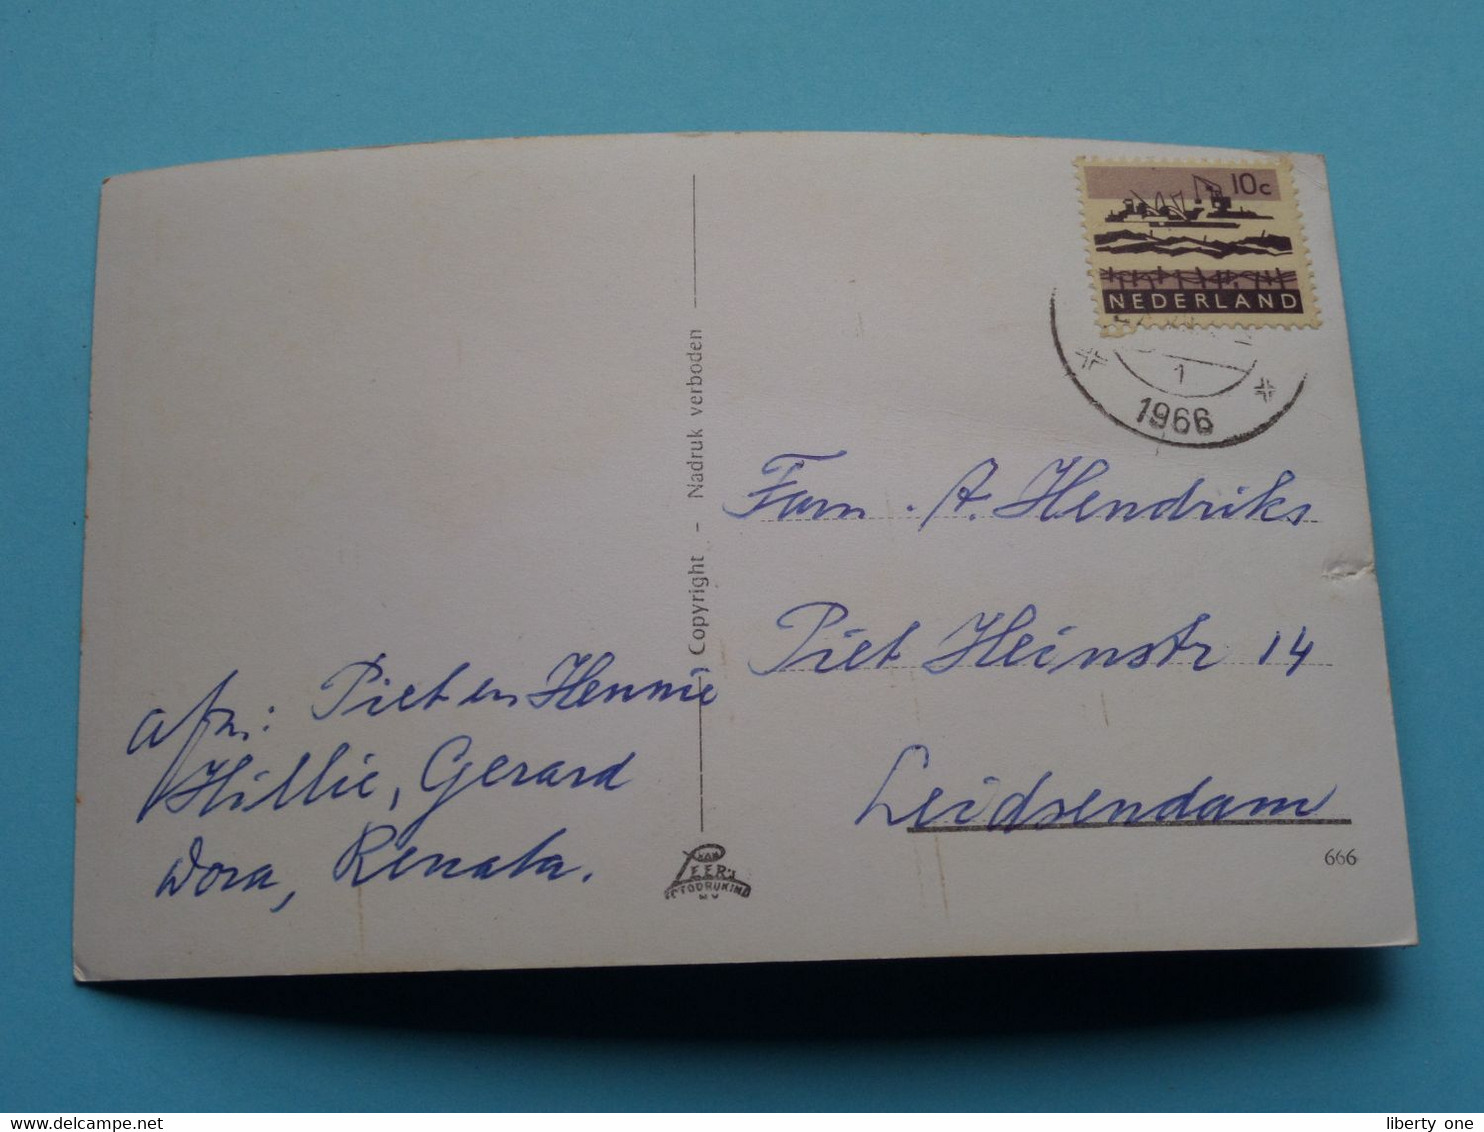 10c
NEDERLAND
1
1966
Fam. A. Hendriks
Piet Heinstr 14
Leidsendam
666
Copyright - Nadruk verboden
afz: Piet en Hennie
Hillie, Gerard
Dora, Renata.
VAN
LEER'S
FOTODRUKIND.
N V
liberty one